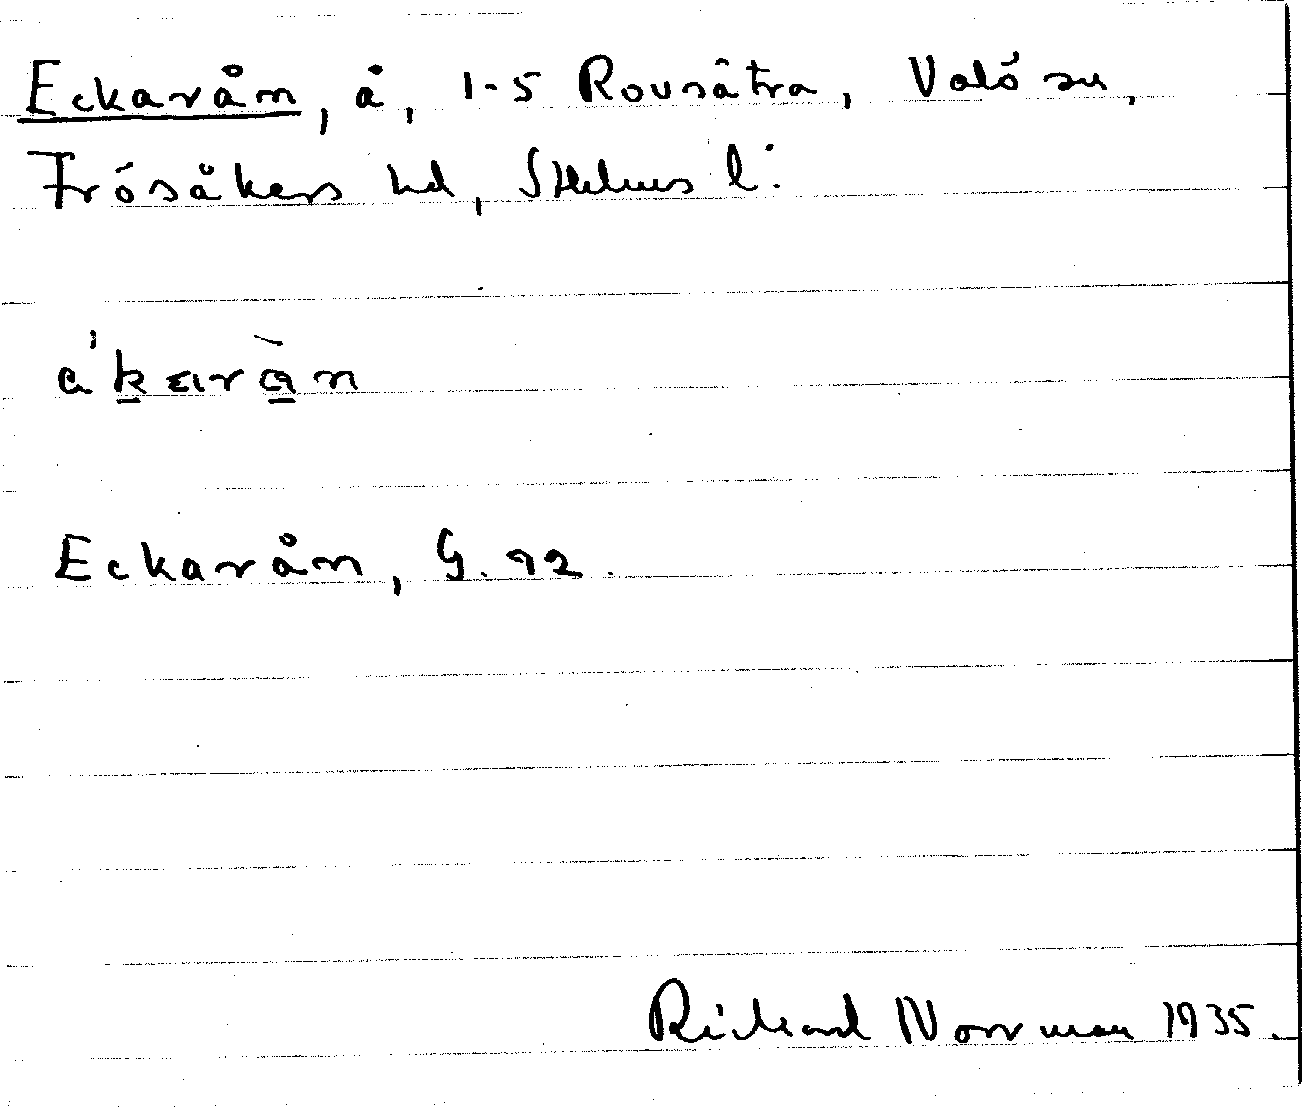 Eckarån, å, 1-5 Rovsätra, Valö sn,
Frösåkers hd, Sthlms l:
Eckarån, G. 92.
Rickard Norrman 1935.